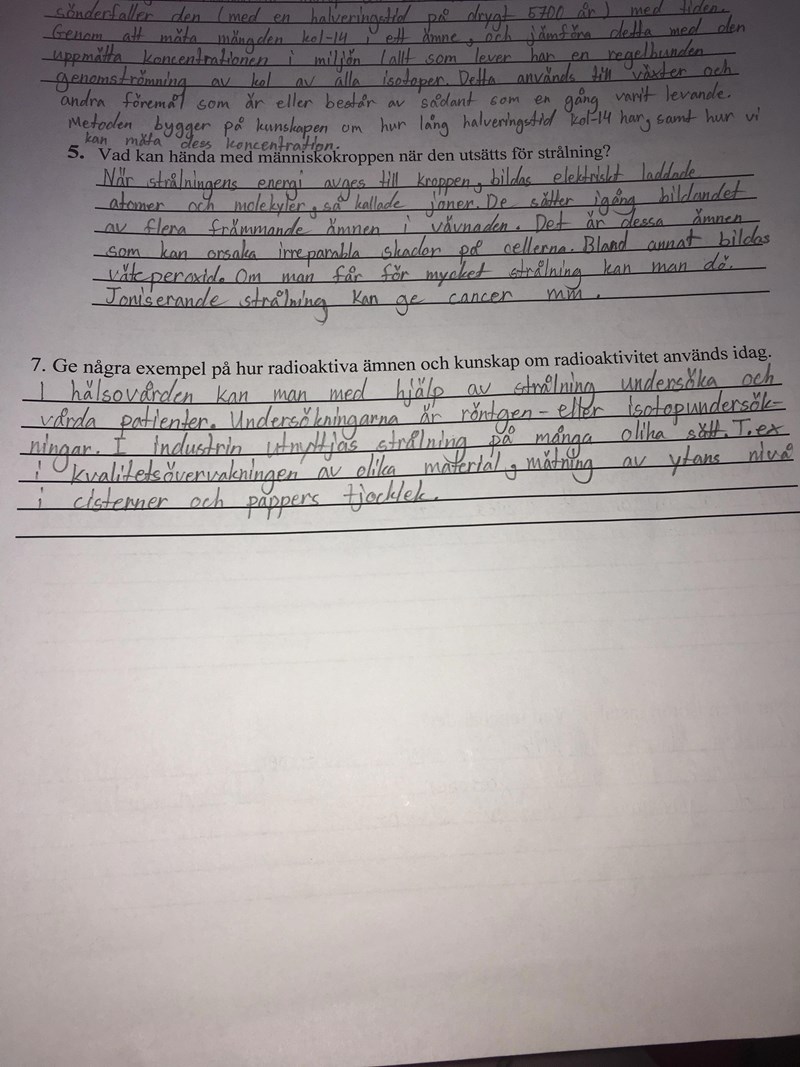 sönderfaller den (med en halveringstid på drygt 5700 år) med tiden.
Genom att mäta mängden kol-14 i ett ämne, och jämföra detta med den
uppmätta koncentrationen i miljön (allt som lever har en regelbunden
genomströmning av kol av alla isotoper. Detta används till växter och
andra föremål som är eller består av sådant som en gång varit levande.
Metoden bygger på kunskapen om hur lång halveringstid kol-14 har, samt hur vi
kan mäta dess koncentration.
5. Vad kan hända med människokroppen när den utsätts för strålning?
När strålningens energi avges till kroppen, bildas elektriskt laddade
atomer och molekyler, så kallade joner. De sätter igång bildandet
av flera främmande ämnen i vävnaden. Det är dessa ämnen
som kan orsaka irreparabla skador på cellerna. Bland annat bildas
väteperoxid. Om man får för mycket strålning kan man dö.
Joniserande strålning kan ge cancer mm.
7. Ge några exempel på hur radioaktiva ämnen och kunskap om radioaktivitet används idag.
I hälsovården kan man med hjälp av strålning undersöka och
vårda patienter. Undersökningarna är röntgen- eller isotopundersök-
ningar. I industrin utnyttjas strålning på många olika sätt. T.ex
i kvalitetsövervakningen av olika material, mätning av ytans nivå
i cisterner och pappers tjocklek.